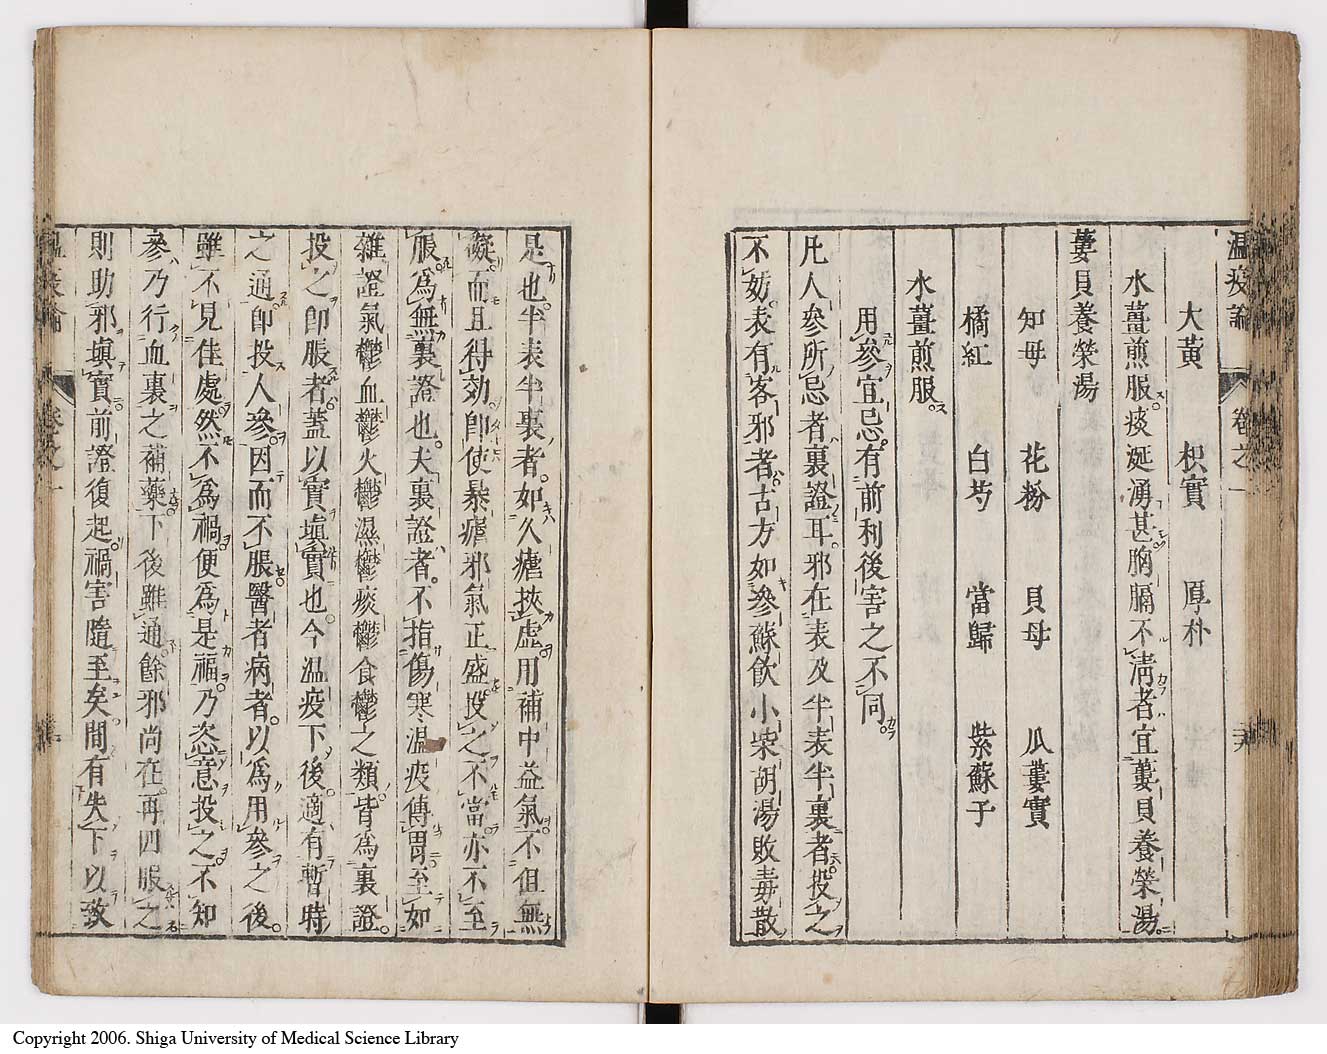 温疫論 卷之一
大黃 枳實 厚朴
水薑煎服痰涎湧甚胸膈不淸者宜蔞貝養榮湯
蔞貝養榮湯
知母 花粉 貝母 瓜蔞實
橘紅 白芍 當歸 紫蘇子
水薑煎服
用參宜忌有前利後害之不同
凡人參所忌者裏證耳邪在表及半表半裏者投之
不妨表有客邪者古方如參蘇飮小柴胡湯敗毒散
是也半表半裏者如久瘧挾虛用補中益氣不但無
礙而且得効卽使暴瘧邪氣正盛投之不當亦不至
脹爲無裏證也夫裏證者不指傷寒温疫傳胃至如
雜證氣鬱血鬱火鬱濕鬱痰鬱食鬱之類皆爲裏證
投之卽脹者蓋以實塡實也今温疫下後適有暫時
之通卽投人參因而不脹醫者病者以爲用參之後
雖不見佳處然不爲禍便爲是福乃恣意投之不知
參乃行血裏之補藥下後雖通餘邪尚在再四服之
則助邪塡實前證復起禍害隨至矣間有失下以致
卷之一
Copyright 2006. Shiga University of Medical Science Library